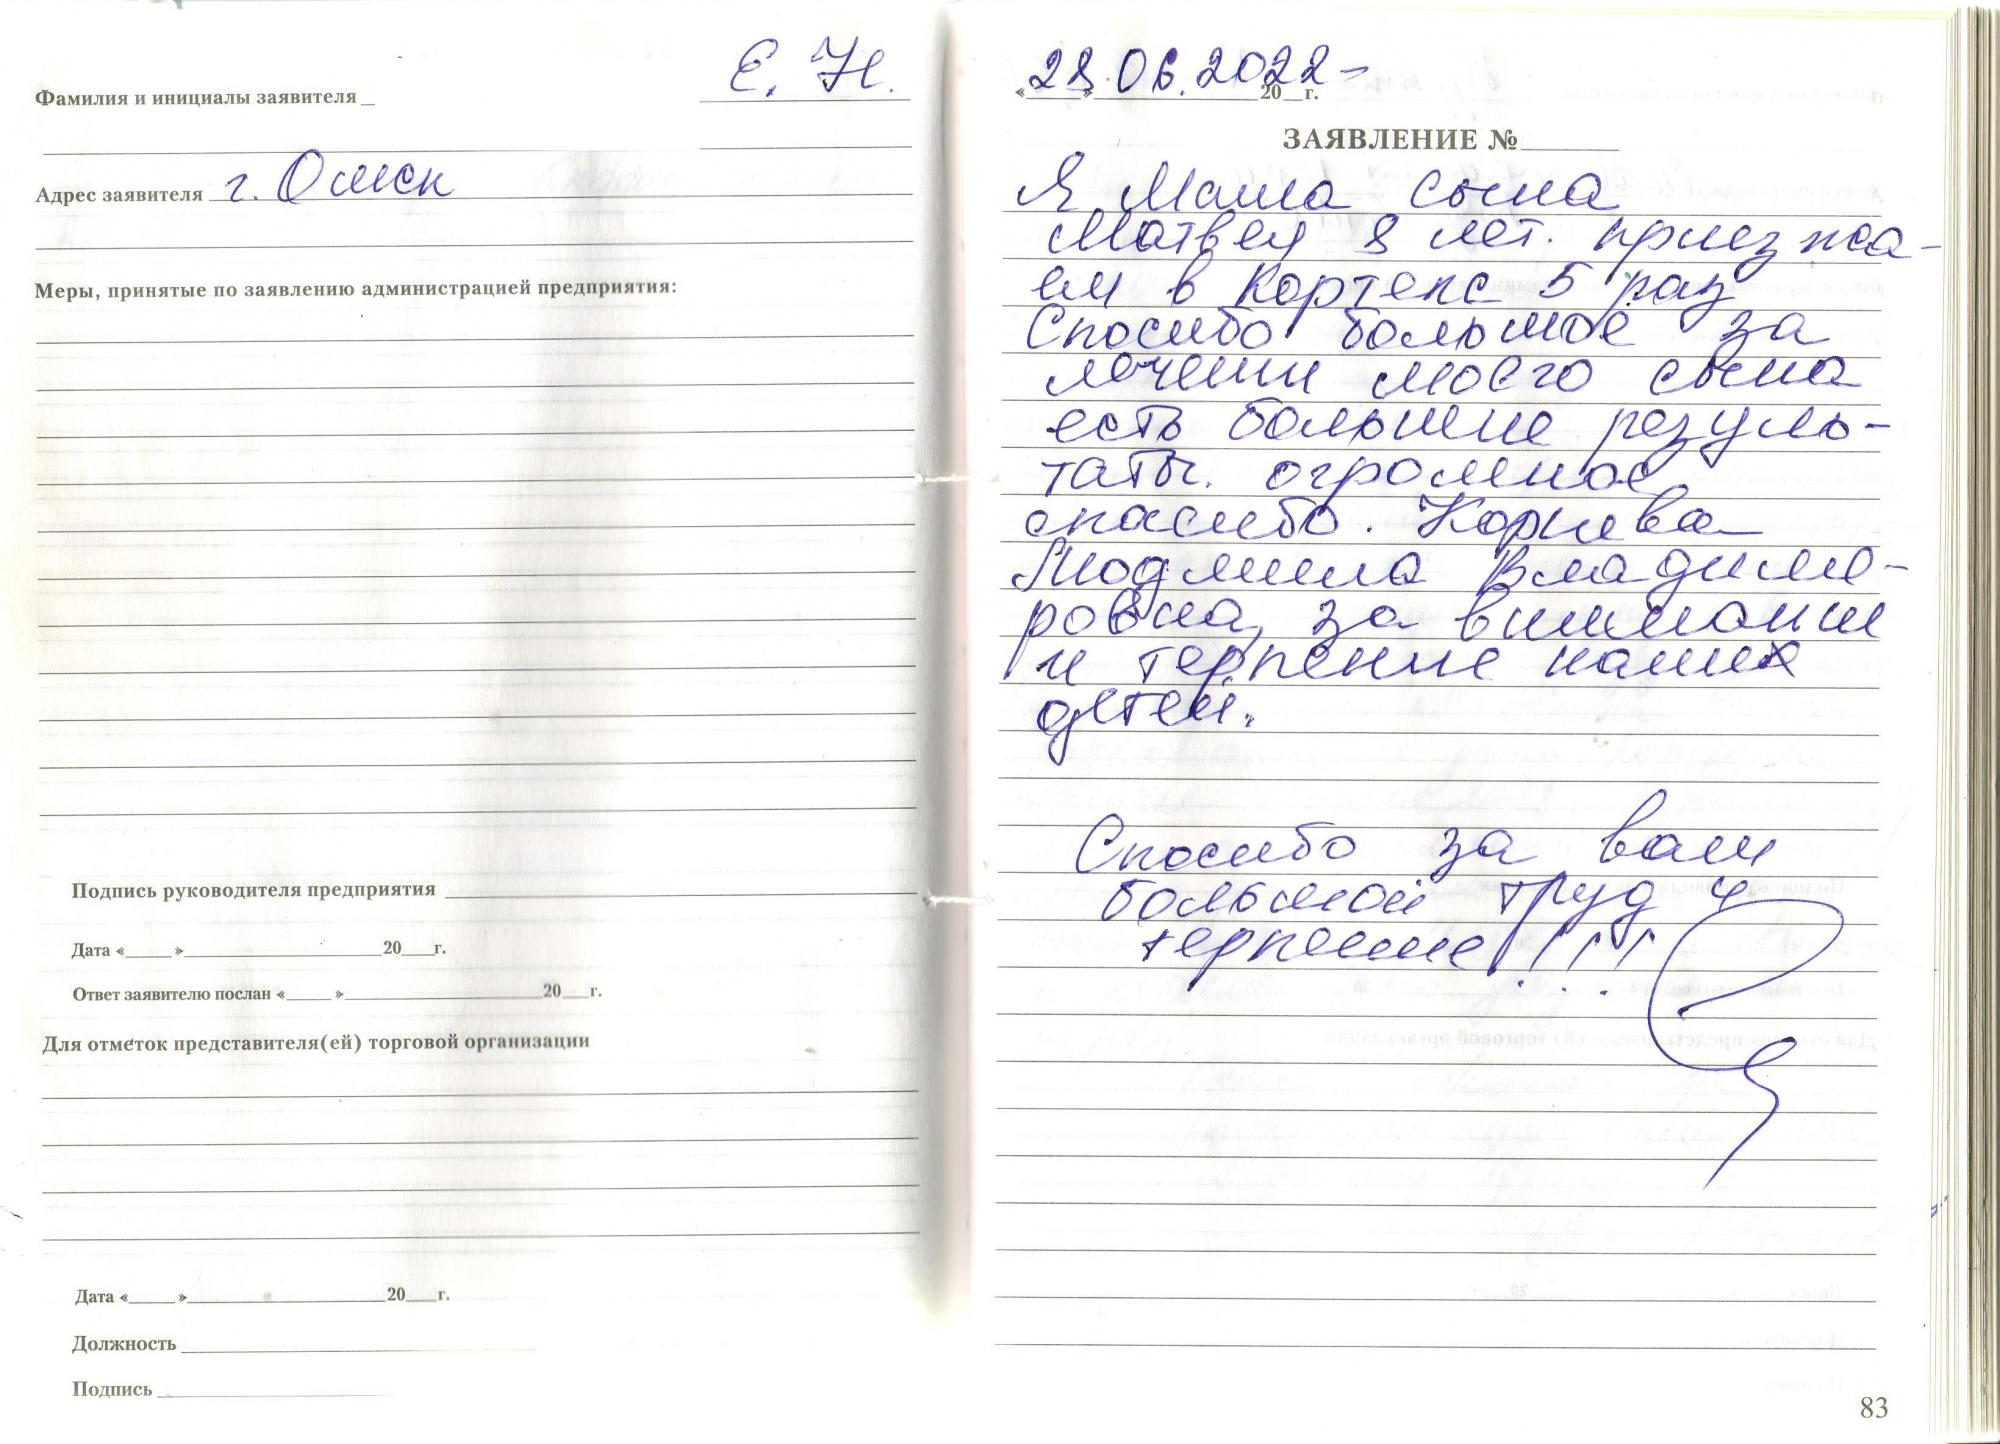 Фамилия и инициалы заявителя Е. Н.
Адрес заявителя г. Омск
Меры, принятые по заявлению администрацией предприятия:
Подпись руководителя предприятия
Дата « » 20 г.
Ответ заявителю послан « » 20 г.
Для отметок представителя(ей) торговой организации
Дата « » 20 г.
Должность
Подпись
28.06.2022-
« » 20 г.
ЗАЯВЛЕНИЕ №
Я Мама сына
Матвея 8 лет. приезжа-
ем в Кортекс 5 раз
Спосибо большое за
лечении моего сына
есть большие резуль-
таты. огромное
спасибо. Корнева
Людмила Владими-
ровна, за внимании
и терпение наших
детей.
Спосибо за ваш
большой труд и
терпение!!!!
83